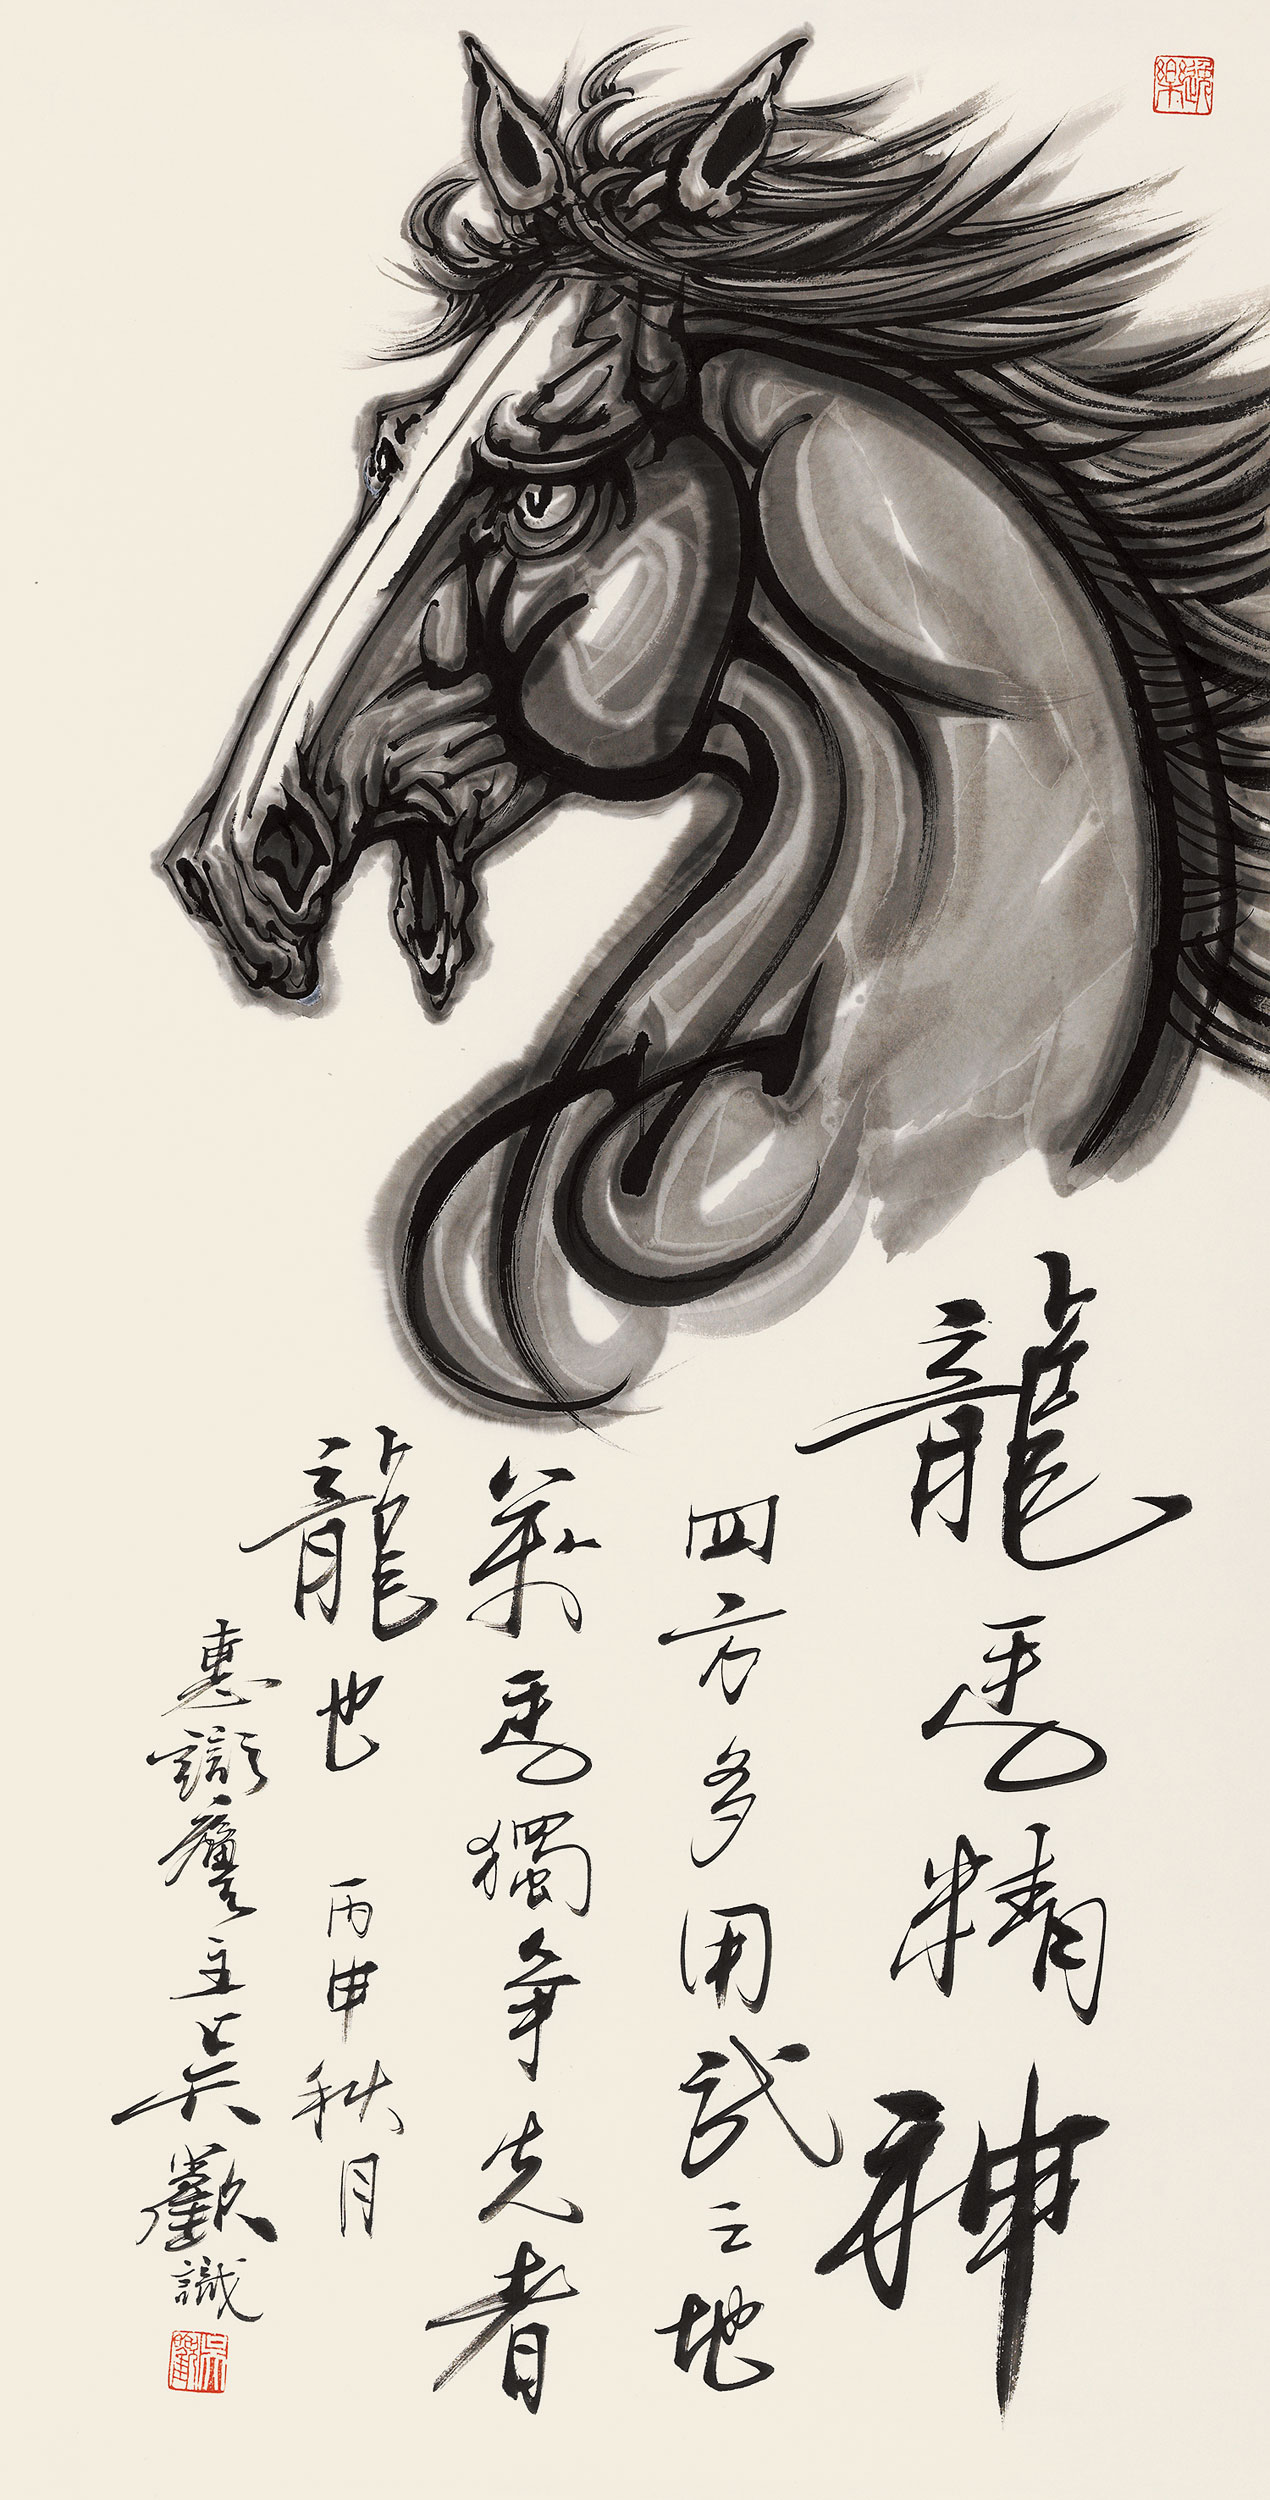 逸樂
龍馬精神
四方多用武之地
萬馬獨爭先者
龍也 丙申秋月
惠 主吳歡識
吳歡